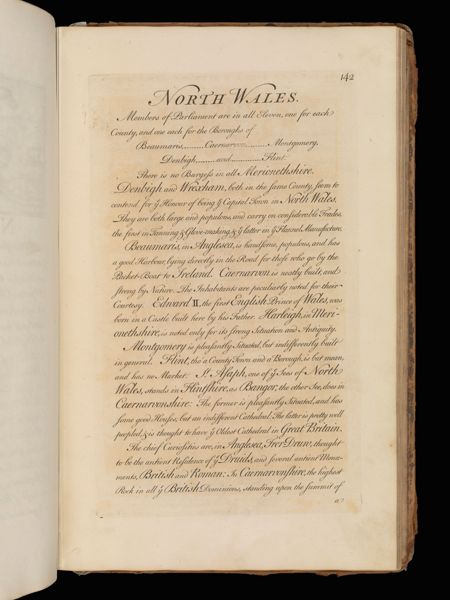 142
NORTH WALES.
Members of Parliament are in all Eleven, one for each
County, and one each for the Boroughs of
Beaumaris,..........Caernarvon..........Montgomery,
Denbigh..........and..............Flint.
There is no Burgess in all Merionethshire.
Denbigh and Wrexham, both in the same County, seem to
contend for ẏ Honour of being ẏ Capital Town in North Wales.
They are both large and populous, and carry on considerable Trades,
the first in Tanning & Glove-making, & ẏ latter in ẏ Flannel Manufacture.
Beaumaris, in Anglesea, is handsome, populous, and has
a good Harbour, lying directly in the Road for those who go by the
Packet-Boat to Ireland. Caernarvon is neatly built, and
strong by Nature. The Inhabitants are peculiarly noted for their
Courtesy. Edward II, the first English Prince of Wales, was
born in a Castle built here by his Father. Harleigh, in Meri-
onethshire, is noted only for its strong Situation and Antiquity.
Montgomery is pleasantly Situated, but indifferently built
in general. Flint, tho' a County Town and a Borough, is but mean,
and has no Market. St. Asaph, one of ẏ Sees of North
Wales, stands in Flintshire, as Bangor, the other See, does in
Caernarvonshire: The former is pleasantly Situated, and has
some good Houses, but an indifferent Cathedral. The latter is pretty well
peopled, & is thought to have ẏ Oldest Cathedral in Great Britain.
The chief Curiosities are, in Anglesea, Trer Druw, thought
to be the antient Residence of ẏ Druids, and several antient Monu-
ments, British and Roman: In Caernarvonshire, the highest
Rock in all ẏ British Dominions, standing upon the Summit of